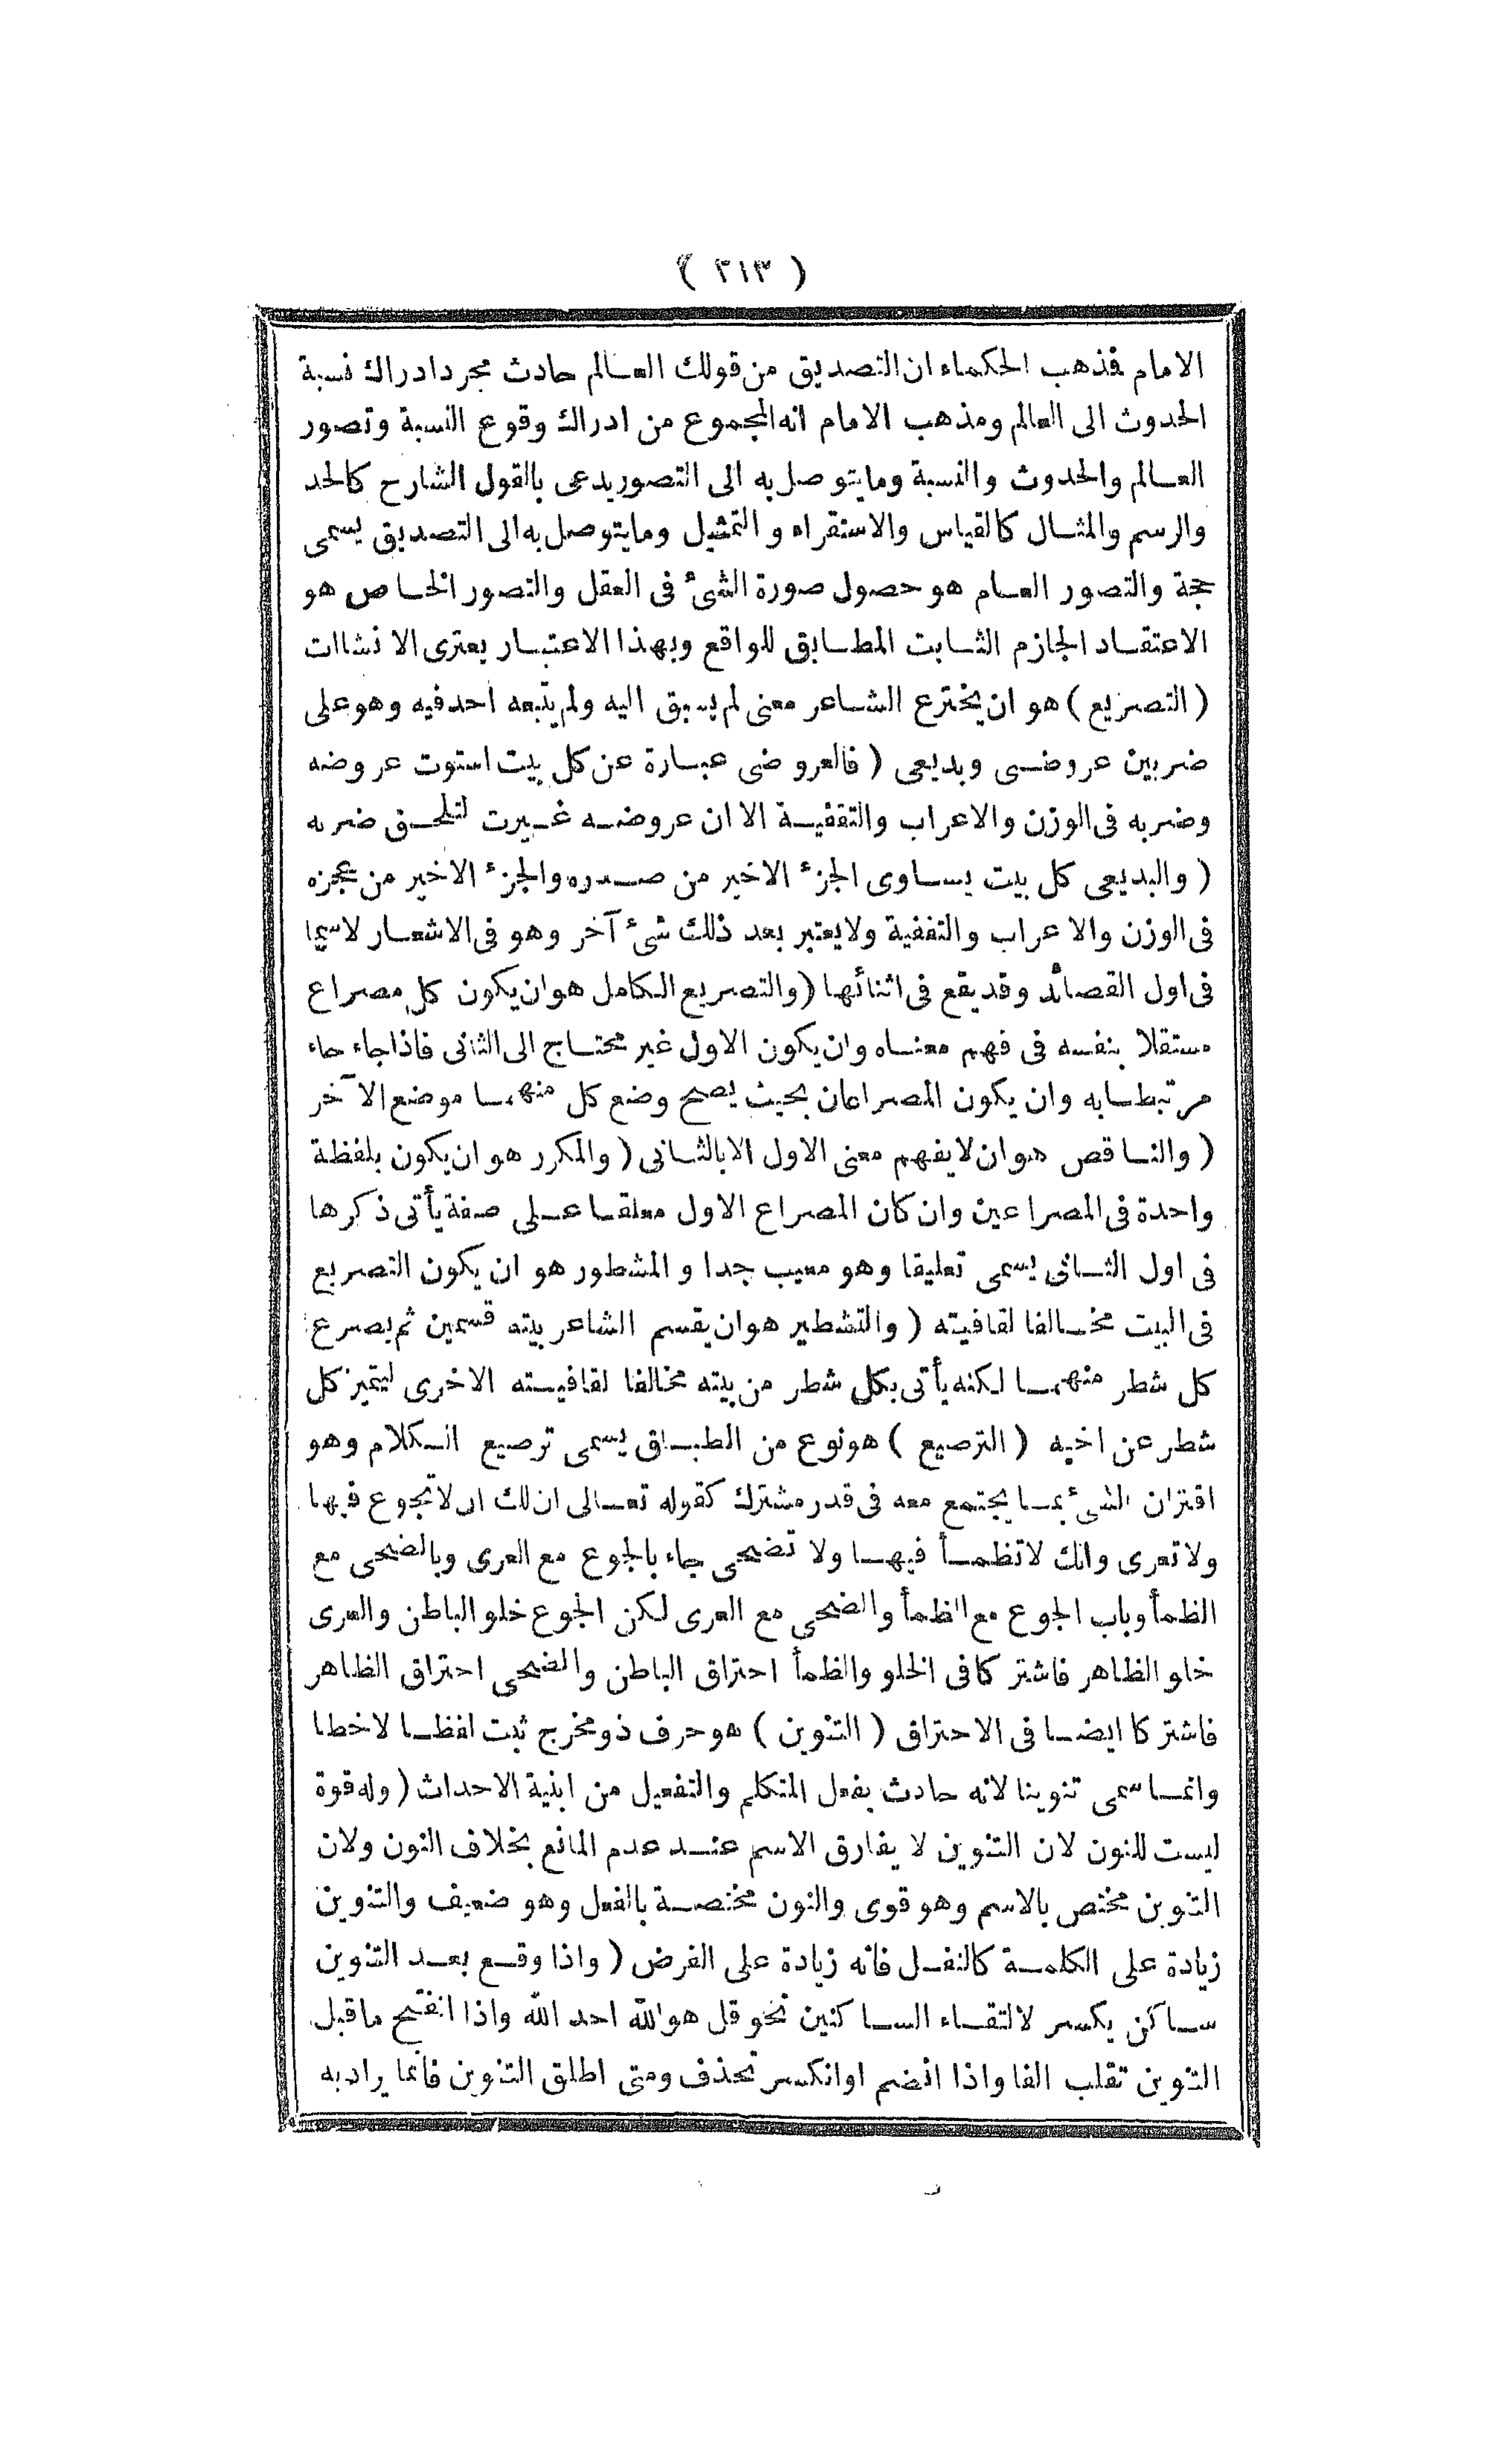 ( ٣١٣ )
الامام فذهب الحكماء ان التصديق من قولك العالم حادث مجرد ادراك نسبة
الحدوث الى العالم ومذهب الامام انه المجموع من ادراك وقوع النسبة وتصور
العالم والحدوث والنسبة وما يتوصل به الى التصور يدعى بالقول الشارح كالحد
والرسم والمثال كالقياس والاستقراء والتمثيل وما يتوصل به الى التصديق يسمى
حجة والتصور العام هو حصول صورة الشئ فى العقل والتصور الخاص هو
الاعتقاد الجازم الثابت المطابق للواقع وبهذا الاعتبار يعترى الانشاات
( التصريع ) هو ان يخترع الشاعر معنى لم يسبق اليه ولم يتبعه احد فيه وهو على
ضربين عروضى وبديعى ( فالعروضى عبارة عن كل بيت استوت عروضه
وضربه فى الوزن والاعراب والتقفية الا ان عروضه غيرت لتلحق ضربه
( والبديعى كل بيت يساوى الجزء الاخير من صدره والجزء الاخير من عجزه
فى الوزن والاعراب والتقفية ولا يعتبر بعد ذلك شئ آخر وهو فى الاشعار لاسيما
فى اول القصائد وقد يقع فى اثنائها ( والتصريع الكامل هو ان يكون كل مصراع
مستقلا بنفسه فى فهم معناه وان يكون الاول غير محتاج الى الثانى فاذا جاء جاء
مرتبطا به وان يكون المصراعان بحيث يصح وضع كل منهما موضع الآخر
( والناقص هو ان لا يفهم معنى الاول الا بالثانى ( والمكرر هو ان يكون بلفظة
واحدة فى المصراعين وان كان المصراع الاول معلقا على صفة يأتى ذكرها
فى اول الثانى يسمى تعليقا وهو معيب جدا والمشطور هو ان يكون التصريع
فى البيت مخالفا لقافيته ( والتشطير هو ان يقسم الشاعر بيته قسمين ثم يصرع
كل شطر منهما لكنه يأتى بكل شطر من بيته مخالفا لقافيته الاخرى ليتميز كل
شطر عن اخيه ( الترصيع ) هو نوع من الطباق يسمى ترصيع الكلام وهو
اقتران الشئ بما يجتمع معه فى قدر مشترك كقوله تعالى ان لك ان لا تجوع فيها
ولا تعرى وانك لا تظمأ فيها ولا تضحى جاء بالجوع مع العرى وبالضحى مع
الظمأ وباب الجوع مع الظمأ والضحى مع العرى لكن الجوع خلو الباطن والعرى
خلو الظاهر فاشتركا فى الخلو والظمأ احتراق الباطن والضحى احتراق الظاهر
فاشتركا ايضا فى الاحتراق ( التنوين ) هو حرف ذو مخرج ثبت لفظا لا خطا
وانما سمى تنوينا لانه حادث بفعل المتكلم والتفعيل من ابنية الاحداث ( وله قوة
ليست للنون لان التنوين لا يفارق الاسم عند عدم المانع بخلاف النون ولان
التنوين مختص بالاسم وهو قوى والنون مختصة بالفعل وهو ضعيف والتنوين
زيادة على الكلمة كالنفل فانه زيادة على الفرض ( واذا وقع بعد التنوين
ساكن يكسر لالتقاء الساكنين نحو قل هو الله احد الله واذا انفتح ما قبل
التنوين تقلب الفا واذا انضم او انكسر تحذف ومتى اطلق التنوين فانما يراد به